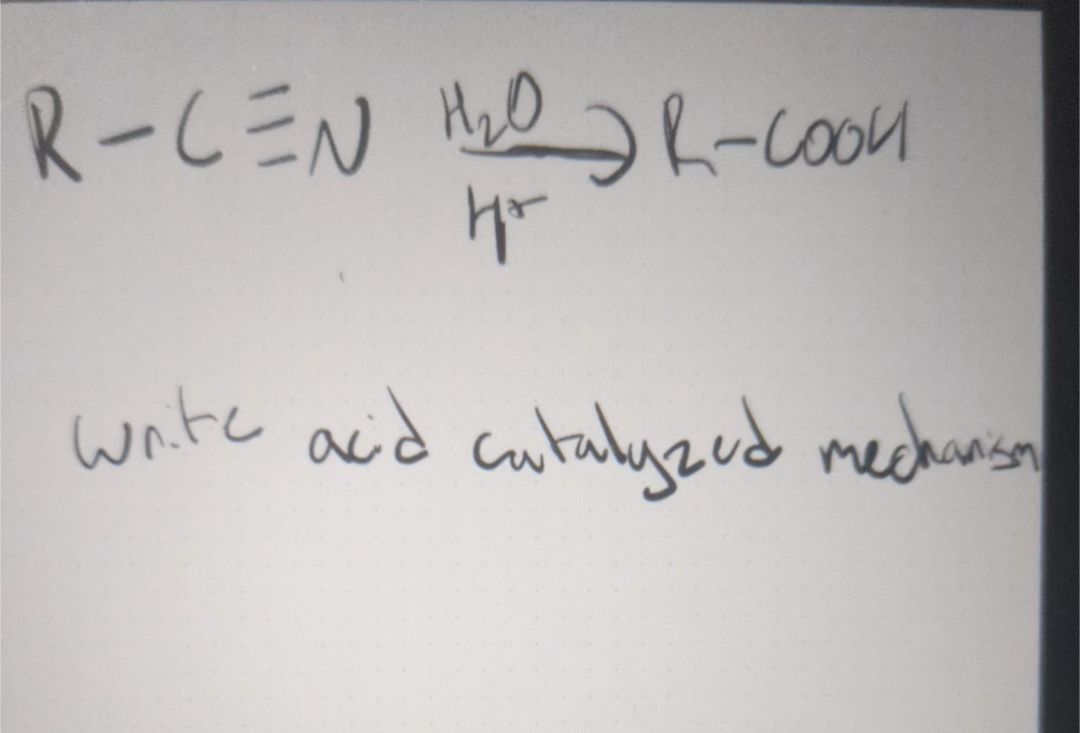 R-C≡N H₂O → R-COOH
H⁺
Write acid catalyzed mechanism